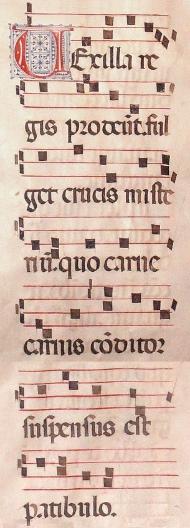 Uexilla re
gis prodeūt. ful
get crucis miste
riū. quo carne
carnis cōditor
suspensus est
patibulo.